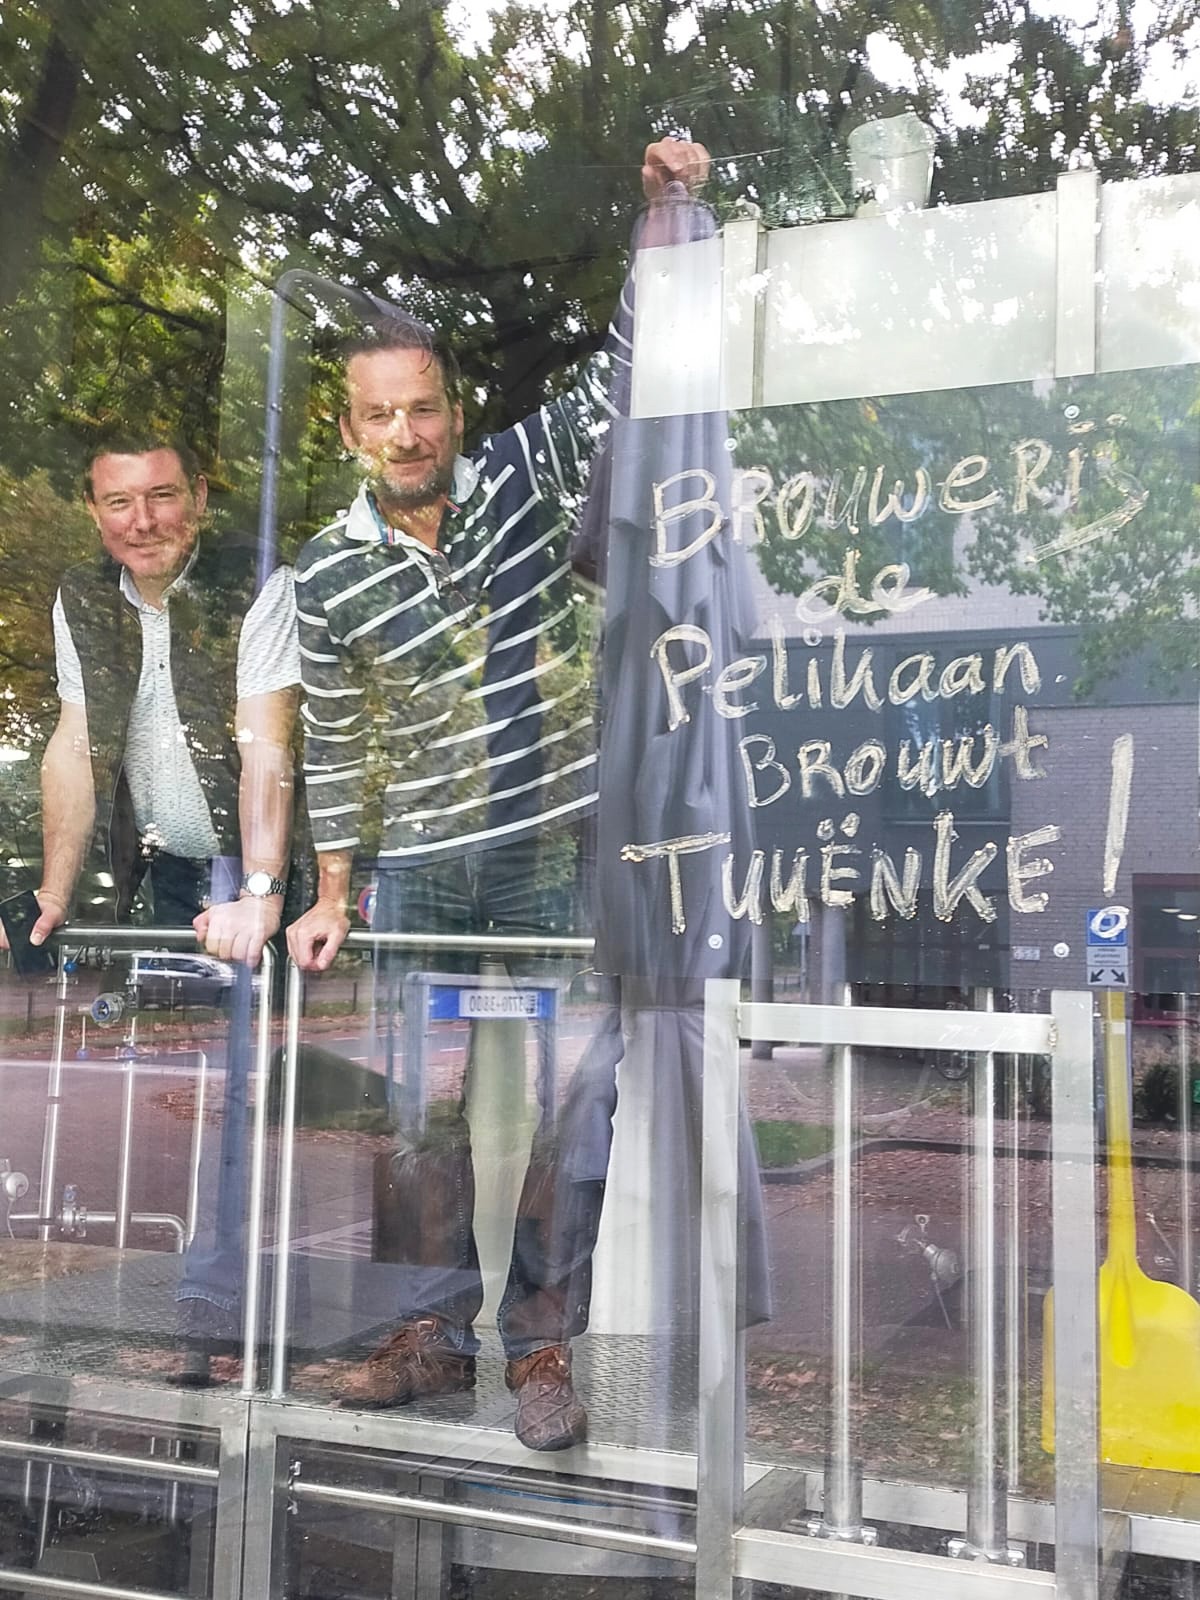 BROUWERIJ
de
Pelikaan
BROUWT
TUUUËNKE!